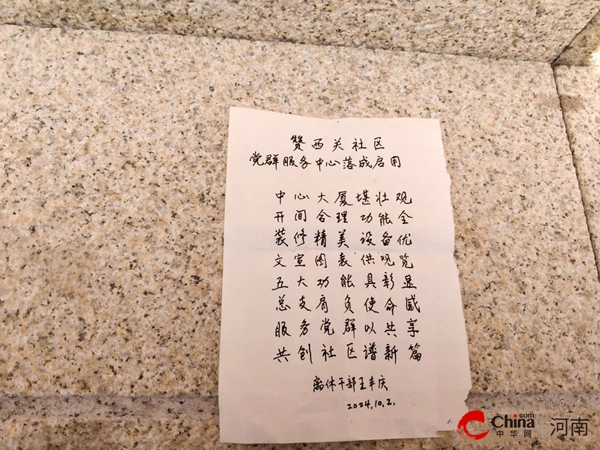 赞西关社区
党群服务中心落成启用
中心大厦堪壮观
开间合理功能全
装修精美设备优
文宣图表供观览
五大功能具彰显
总支肩负使命感
服务党群以共享
共创社区谱新篇
离休干部王丰庆
2024.10.2.
China
中华网
河南